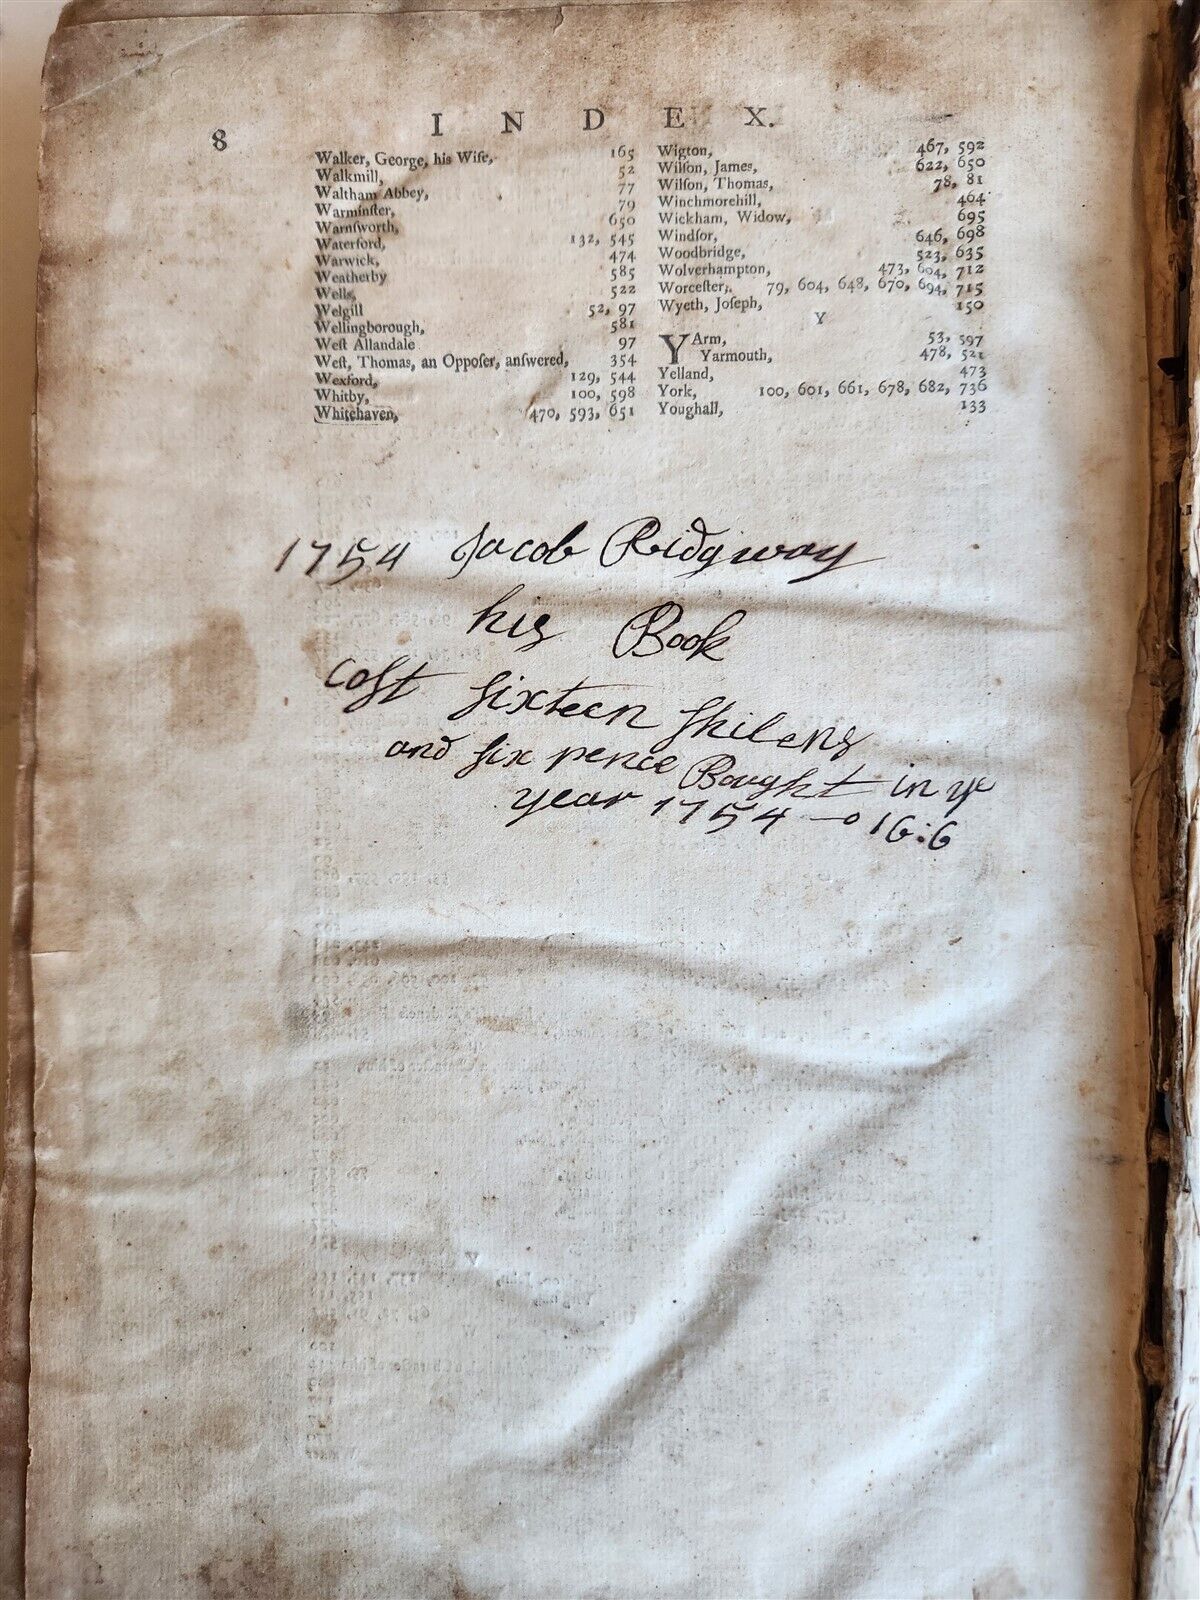 8
I N D E X.
Walker, George, his Wife, 165
Walkmill, 52
Waltham Abbey, 77
Warminſter, 79
Warnſworth, 650
Waterford, 132, 545
Warwick, 474
Weatherby 585
Wells, 522
Welgill 52, 97
Wellingborough, 581
Weſt Allandale 97
Weſt, Thomas, an Oppoſer, anſwered, 354
Wexford, 129, 544
Whitby, 100, 598
Whitehaven, 470, 593, 651
Wigton, 467, 592
Wilſon, James, 622, 650
Wilſon, Thomas, 78, 81
Winchmorehill, 464
Wickham, Widow, 695
Windſor, 646, 698
Woodbridge, 523, 635
Wolverhampton, 473, 604, 712
Worceſter, 79, 604, 648, 670, 694, 715
Wyeth, Joſeph, 150
Y
YArm, 53, 597
Yarmouth, 478, 521
Yelland, 473
York, 100, 601, 661, 678, 682, 736
Youghall, 133
1754 Jacob Ridgway
his Book
coſt ſixteen ſhilens
and ſix pence Bought in ye
year 1754 —o 16:6